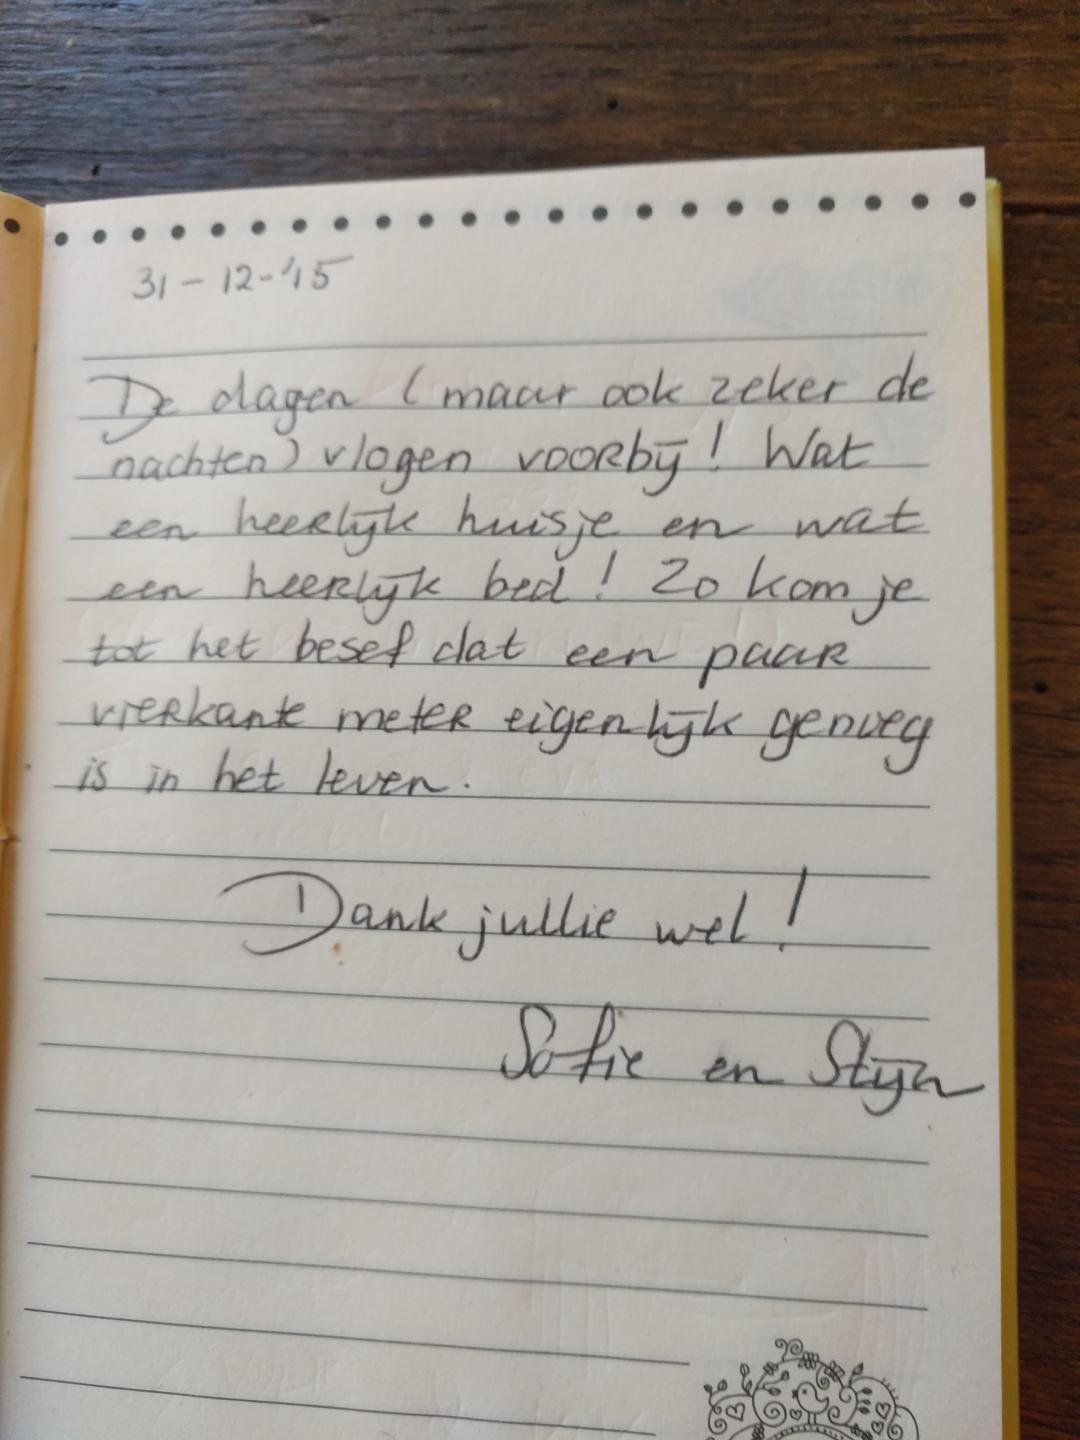 31-12-'15
De dagen (maar ook zeker de
nachten) vlogen voorbij! Wat
een heerlijk huisje en wat
een heerlijk bed! Zo kom je
tot het besef dat een paar
vierkante meter eigenlijk genoeg
is in het leven.
Dank jullie wel!
Sofie en Stijn